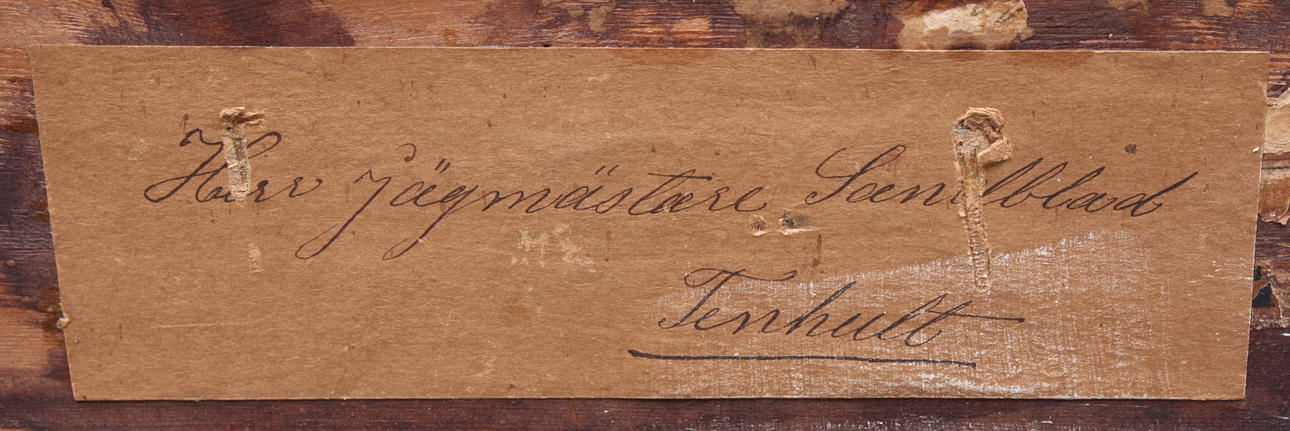 Herr Jägmästare Sandblad
Tenhult